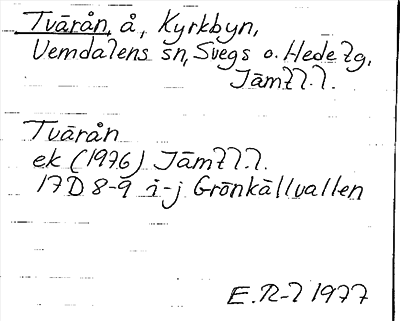 Tvärån, å, Kyrkbyn,
Vemdalens sn, Svegs o. Hede tg,
Jämtl.l.
Tvärån
ek (1976) Jämtl.l.
17D 8-9 i-j Grönkällvallen
E.R-l 1977